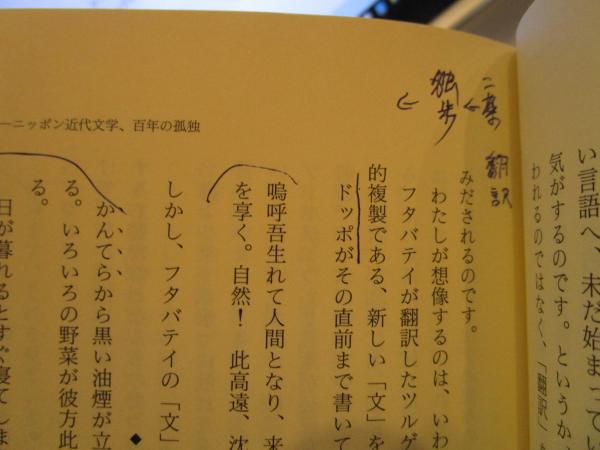 い言語へ、未だ始まってい
気がするのです。というか、
われるのではなく、「翻訳」
二葉 翻訳
独歩
ーニッポン近代文学、百年の孤独
みだされるのです。
わたしが想像するのは、いわ
フタバテイが翻訳したツルゲ
的複製である、新しい「文」を
ドッポがその直前まで書いて
嗚呼吾生れて人間となり、来
を享く。自然！ 此高遠、沈
しかし、フタバテイの「文」
◆
かんてらから黒い油煙が立
る。いろいろの野菜が彼方此
る。
日が暮れるとすぐ寝てしま